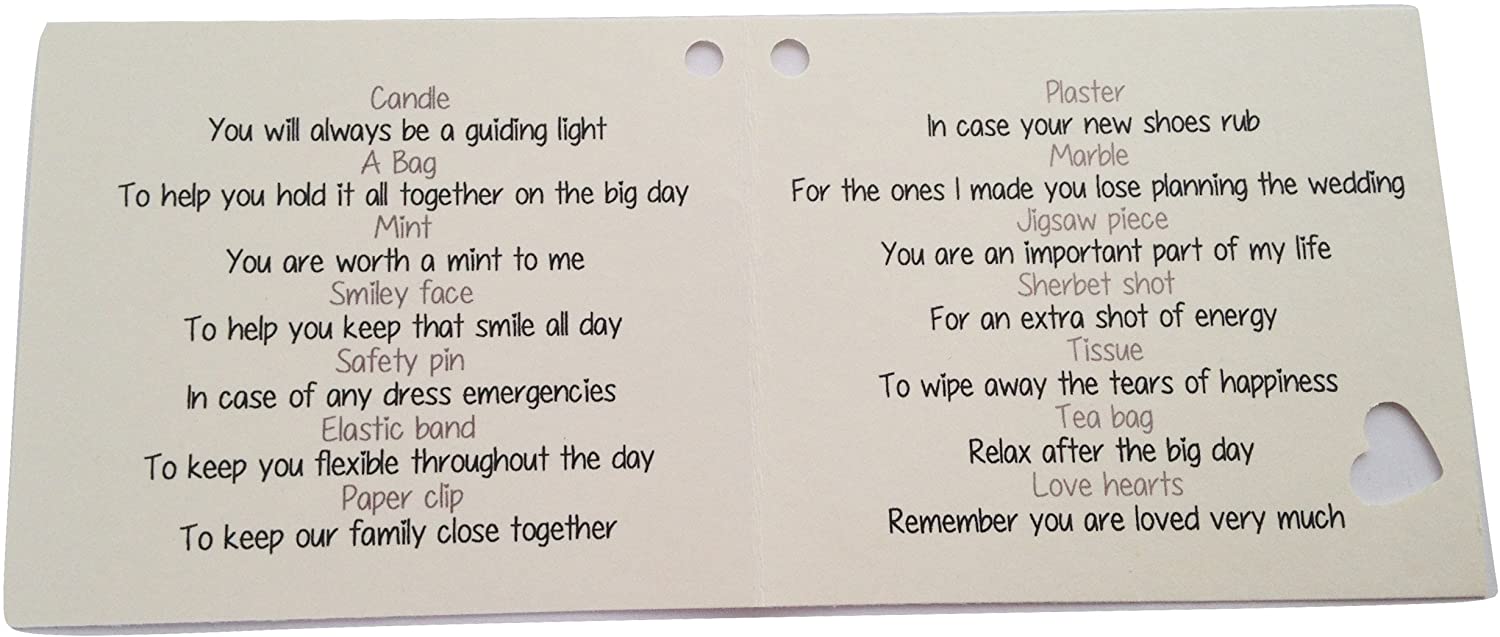 Candle
You will always be a guiding light
A Bag
To help you hold it all together on the big day
Mint
You are worth a mint to me
Smiley face
To help you keep that smile all day
Safety pin
In case of any dress emergencies
Elastic band
To keep you flexible throughout the day
Paper clip
To keep our family close together
Plaster
In case your new shoes rub
Marble
For the ones I made you lose planning the wedding
Jigsaw piece
You are an important part of my life
Sherbet shot
For an extra shot of energy
Tissue
To wipe away the tears of happiness
Tea bag
Relax after the big day
Love hearts
Remember you are loved very much